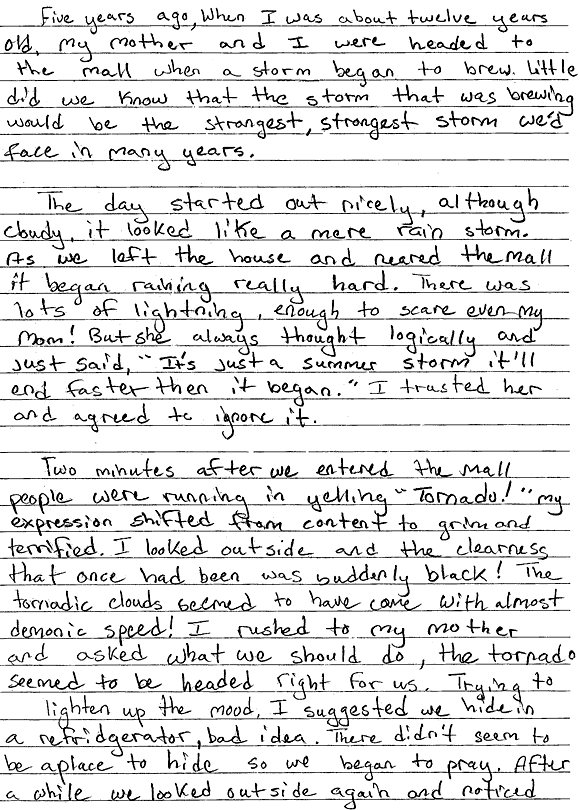 Five years ago, When I was about twelve years
old, my mother and I were headed to
the mall when a storm began to brew. Little
did we know that the storm that was brewing
would be the strangest, strongest storm we'd
face in many years.
The day started out nicely, although
cloudy, it looked like a mere rain storm.
As we left the house and neared the mall
it began raining really hard. There was
lots of lightning, enough to scare even my
mom! But she always thought logically and
just said, "It's just a summer storm it'll
end faster then it began." I trusted her
and agreed to ignore it.
Two minutes after we entered the mall
people were running in yelling "Tornado!" my
expression shifted from content to grim and
terrified. I looked outside and the clearness
that once had been was suddenly black! The
tornadic clouds seemed to have came with almost
demonic speed! I rushed to my mother
and asked what we should do, the tornado
seemed to be headed right for us. Trying to
lighten up the mood, I suggested we hide in
a refridgerator, bad idea. There didn't seem to
be aplace to hide so we began to pray. After
a while we looked outside again and noticed